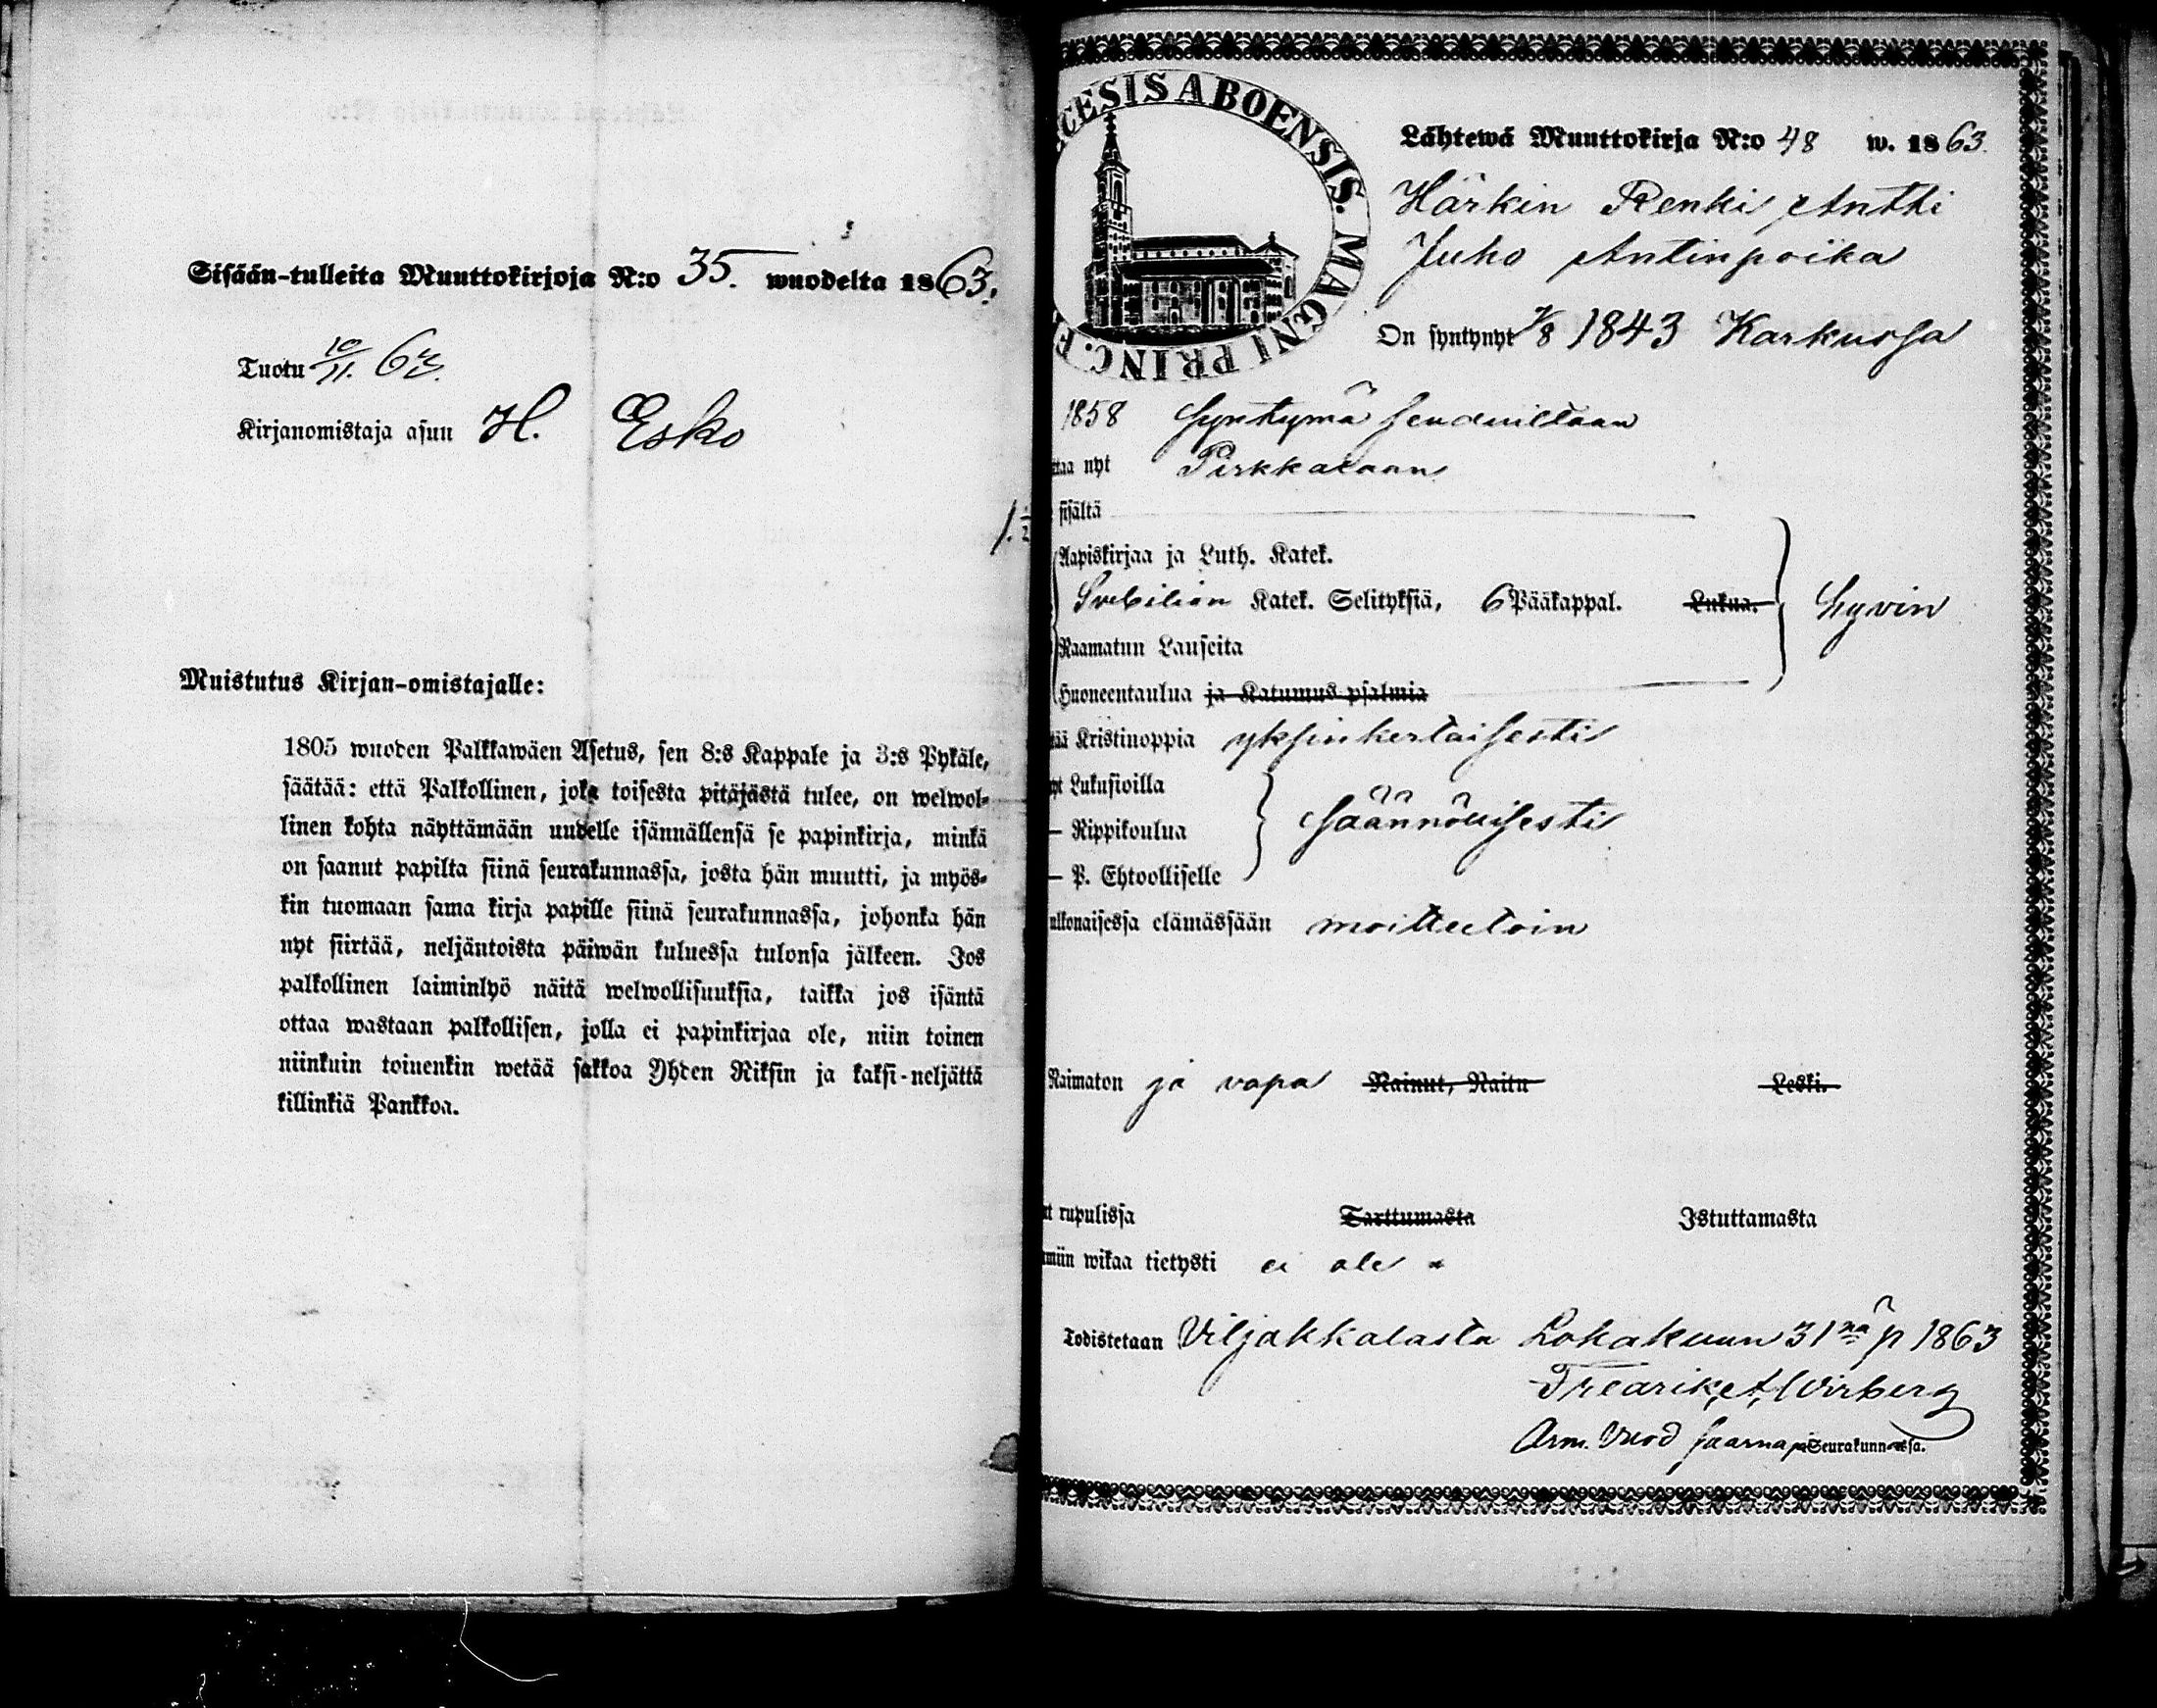 Sisään-tulleita Muuttokirjoja N:o 35. wuodelta 1863.
Tuotu 10/11. 63.
Kirjanomistaja asun H. Esko
Muistutus Kirjan-omistajalle:
1805 wuoden Palkkawäen Asetus, sen 8:s Kappale ja 3:s Pykäle,
säätää: että Palkollinen, joka toisesta pitäjästä tulee, on welwol-
linen kohta näyttämään uudelle isännällensä se papinkirja, minkä
on saanut papilta siinä seurakunnassa, josta hän muutti, ja myös-
kin tuomaan sama kirja papille siinä seurakunnassa, johonka hän
nyt siirtää, neljäntoista päiwän kuluessa tulonsa jälkeen. Jos
palkollinen laiminlyö näitä welwollisuuksia, taikka jos isäntä
ottaa wastaan palkollisen, jolla ei papinkirjaa ole, niin toinen
niinkuin toinenkin wetää sakkoa Yhden Riksin ja kaksi-neljättä
killinkiä Pankkoa.
CESIS ABOENSIS. MAGNI PRINC. F
Lähtewä Muuttokirja N:o 48 w. 1863.
Härkin Renki Antti
Juho Antinpoika
On syntynyt 7/8 1843 Karkussa
1858 Syntymä seuduiltaan
taa nyt Pirkkalaan
sisältä
Aapiskirjaa ja Luth. Katek.
Svebilion Katek. Selityksiä, 6 Pääkappal. Lukua. hyvin
Raamatun Lauseita
Huoneentaulua ja Katumus psalmia
tää Kristinoppia yksinkertaisesti
yt Lukusioilla
— Rippikoulua säännöllisesti
— P. Ehtoolliselle
ulkonaisessa elämässään moitteetoin
Naimaton ja vapa Nainut, Naitu Leski.
ut rupulissa Tarttumasta Istuttamasta
miin wikaa tietysti ei ole
Todistetaan Viljakkalasta Lokakuun 31nä p 1863
Fredrik A. Wirberg
Arm. Vuod saarnaja Seurakunnassa.